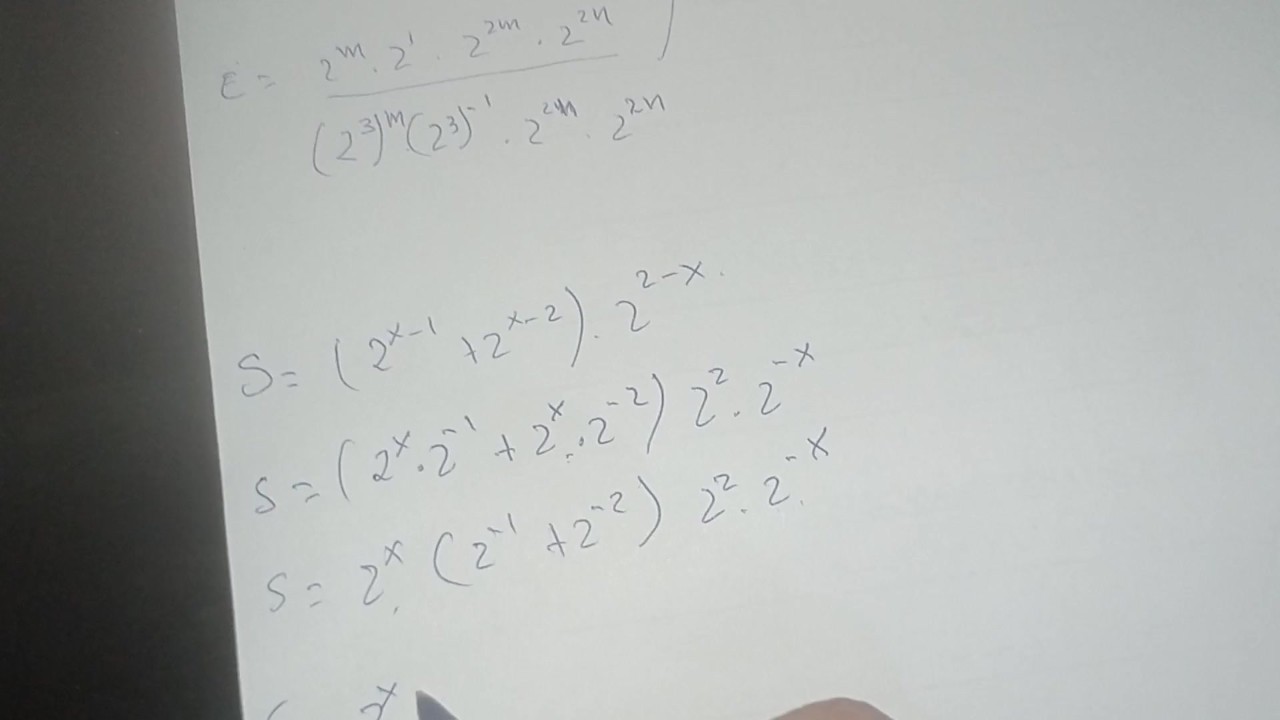 E = 2^m . 2^1 . 2^2m . 2^2n )
(2^3)^m (2^3)^-1 . 2^2m . 2^2n
S = (2^x-1 + 2^x-2) . 2^2-x .
S = (2^x . 2^-1 + 2^x . 2^-2) 2^2 . 2^-x
S = 2^x (2^-1 + 2^-2) 2^2 . 2^-x
2^x